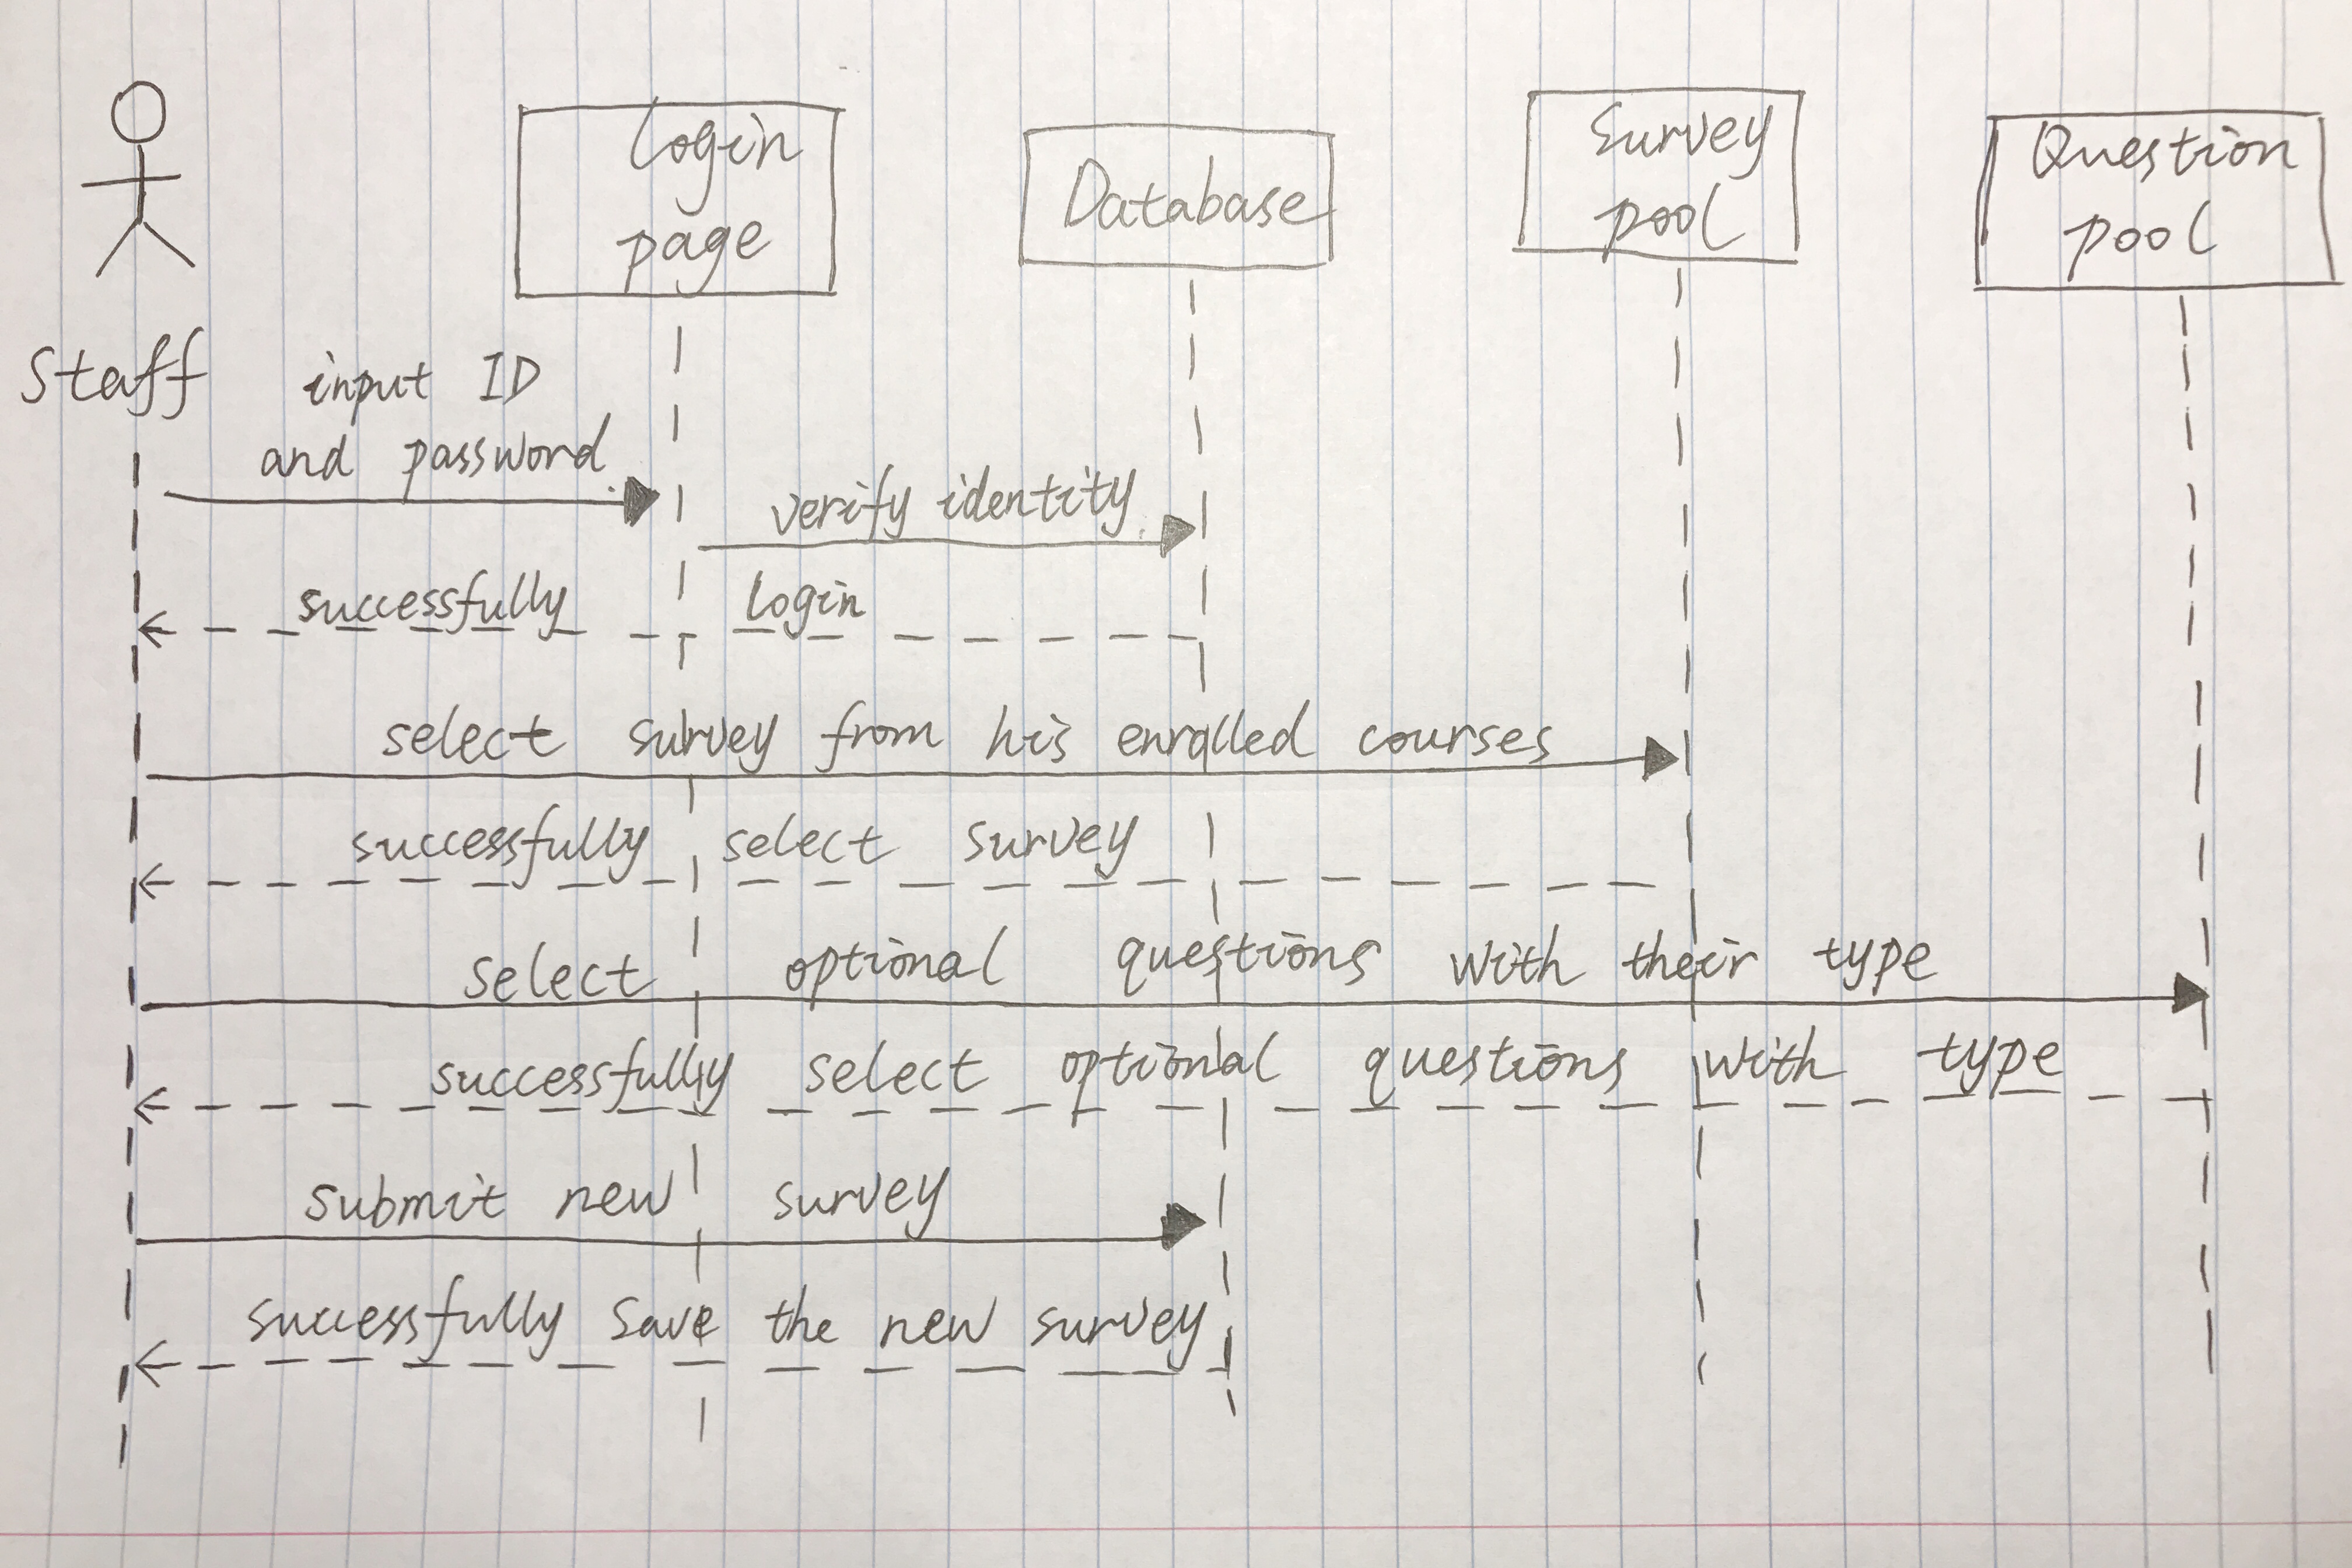 Login
page
Database
Survey
pool
Question
pool
Staff
input ID
and password
verify identity
successfully login
select survey from his enrolled courses
successfully select survey
select optional questions with their type
successfully select optional questions with type
submit new survey
successfully save the new survey